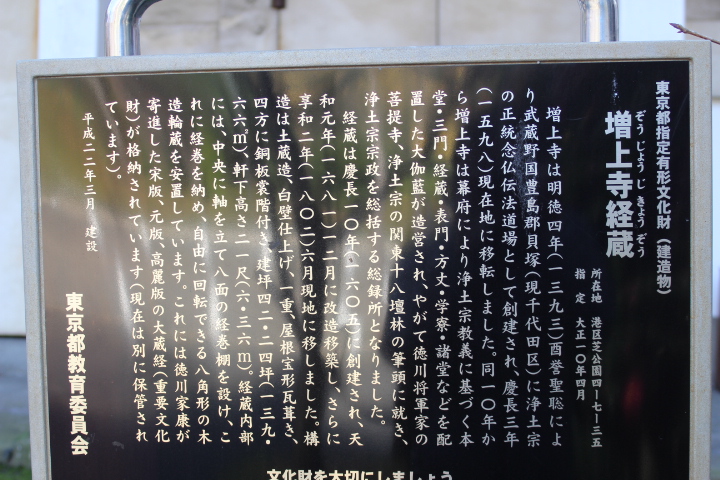 東京都指定有形文化財（建造物）
ぞうじょうじきょうぞう
増上寺経蔵
所在地　港区芝公園四ー七ー三五
指　定　大正一〇年四月
増上寺は明徳四年（一三九三）酉誉聖聡によ
り武蔵野国豊島郡貝塚（現千代田区）に浄土宗
の正統念仏伝法道場として創建され、慶長三年
（一五九八）現在地に移転しました。同一〇年か
ら増上寺は幕府により浄土宗教義に基づく本
堂・三門・経蔵・表門・方丈・学寮・諸堂などを配
置した大伽藍が造営され、やがて徳川将軍家の
菩提寺、浄土宗の関東十八壇林の筆頭に就き、
浄土宗宗政を総括する総録所となりました。
経蔵は慶長一〇年（一六〇五）に創建され、天
和元年（一六八一）一二月に改造移築し、さらに
享和二年（一八〇二）六月現地に移しました。構
造は土蔵造、白壁仕上げ、一重、屋根宝形瓦葺き、
四方に銅板裳階付き、建坪四二・二四坪（一三九・
六六㎡）、軒下高さ二一尺（六・三六ｍ）。経蔵内部
には、中央に軸を立て八面の経巻棚を設け、こ
れに経巻を納め、自由に回転できる八角形の木
造輪蔵を安置しています。これには徳川家康が
寄進した宋版、元版、高麗版の大蔵経（重要文化
財）が格納されています（現在は別に保管され
ています）。
平成二二年三月　建設
東京都教育委員会
文化財を大切にしましょう